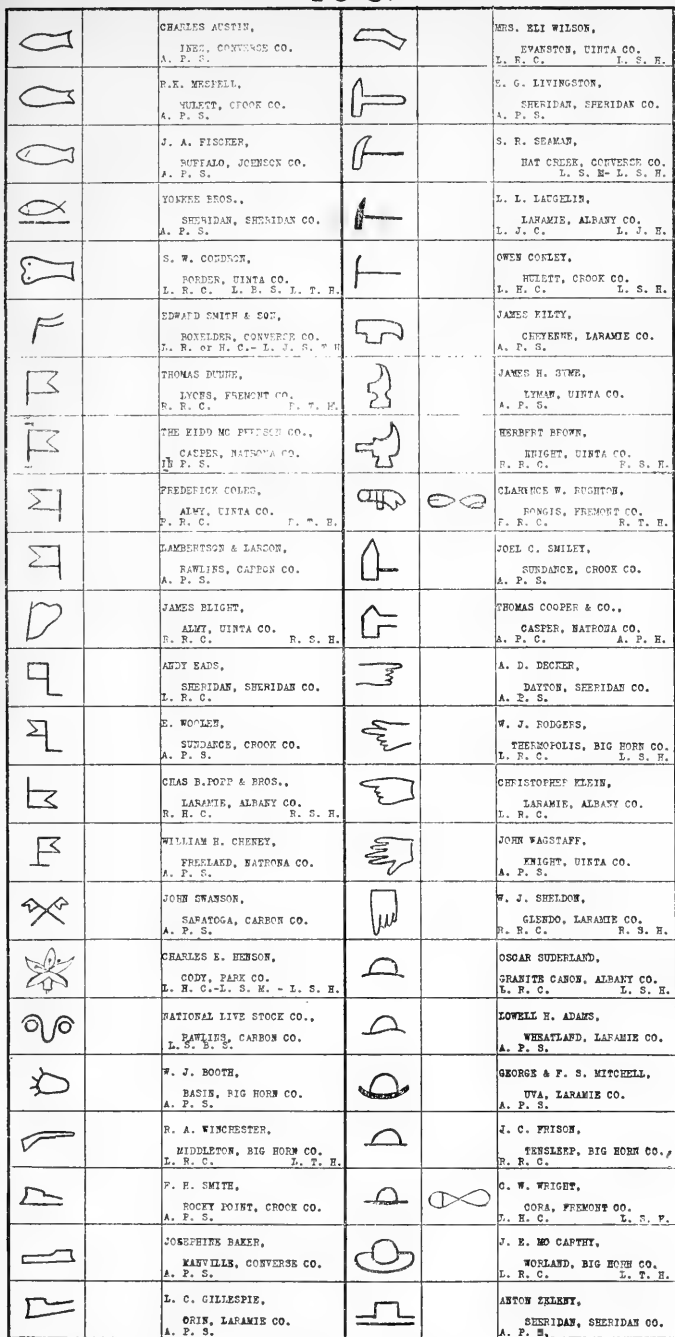 CHARLES AUSTIN,
INEZ, CONVERSE CO.
A. P. S.
R.K. MESPELL,
HULETT, CROOK CO.
A. P. S.
J. A. FISCHER,
BUFFALO, JOHNSON CO.
A. P. S.
YONKEE BROS.,
SHERIDAN, SHERIDAN CO.
A. P. S.
S. W. CONDRON,
BORDER, UINTA CO.
L. R. C. L. B. S. L. T. H.
EDWARD SMITH & SON,
BOXELDER, CONVERSE CO.
L. R. or H. C.- L. J. S. T H
THOMAS DUNNE,
LYONS, FREMONT CO.
R. R. C.
THE KIDD MC CO.,
CASPER, NATRONA CO.
P. S.
FREDERICK COLES,
ALMY, UINTA CO.
R. R. C.
LAMBERTSON & LARSON,
RAWLINS, CARBON CO.
A. P. S.
JAMES BLIGHT,
ALMY, UINTA CO.
R. R. C. R. S. H.
ANDY EADS,
SHERIDAN, SHERIDAN CO.
L. R. C.
E. WOOLEN,
SUNDANCE, CROOK CO.
A. P. S.
CHAS B.POPP & BROS.,
LARAMIE, ALBANY CO.
R. H. C. R. S. H.
WILLIAM H. CHENEY,
FREELAND, NATRONA CO.
A. P. S.
JOHN SWANSON,
SARATOGA, CARBON CO.
A. P. S.
CHARLES E. HENSON,
CODY, PARK CO.
L. H. C.-L. S. M. - L. S. H.
NATIONAL LIVE STOCK CO.,
RAWLINS, CARBON CO.
L. S. B. S.
W. J. BOOTH,
BASIN, BIG HORN CO.
A. P. S.
R. A. WINCHESTER,
MIDDLETON, BIG HORN CO.
L. R. C. L. T. H.
F. H. SMITH,
ROCKY POINT, CROOK CO.
A. P. S.
JOSEPHINE BAKER,
MANVILLE, CONVERSE CO.
A. P. S.
L. C. GILLESPIE,
ORIN, LARAMIE CO.
A. P. S.
MRS. ELI WILSON,
EVANSTON, UINTA CO.
L. R. C. L. S. H.
E. G. LIVINGSTON,
SHERIDAN, SHERIDAN CO.
A. P. S.
S. R. SEAMAN,
HAT CREEK, CONVERSE CO.
L. S. M- L. S. H.
L. L. LAUGELIN,
LARAMIE, ALBANY CO.
L. J. C. L. J. H.
OWEN CONLEY,
HULETT, CROOK CO.
L. H. C. L. S. H.
JAMES KILTY,
CHEYENNE, LARAMIE CO.
A. P. S.
JAMES H. SYME,
LYMAN, UINTA CO.
A. P. S.
HERBERT BROWN,
KNIGHT, UINTA CO.
R. R. C. R. S. H.
CLARENCE W. RUGHTON,
RONGIS, FREMONT CO.
R. R. C. R. T. H.
JOEL C. SMILEY,
SUNDANCE, CROOK CO.
A. P. S.
THOMAS COOPER & CO.,
CASPER, NATRONA CO.
A. P. C. A. P. H.
A. D. DECKER,
DAYTON, SHERIDAN CO.
A. P. S.
W. J. RODGERS,
THERMOPOLIS, BIG HORN CO.
L. R. C. L. S. H.
CHRISTOPHER KLEIN,
LARAMIE, ALBANY CO.
L. R. C.
JOHN WAGSTAFF,
KNIGHT, UINTA CO.
A. P. S.
W. J. SHELDON,
GLENDO, LARAMIE CO.
R. R. C. R. S. H.
OSCAR SUDERLAND,
GRANITE CANON, ALBANY CO.
L. R. C. L. S. H.
LOWELL H. ADAMS,
WHEATLAND, LARAMIE CO.
A. P. S.
GEORGE & F. S. MITCHELL,
UVA, LARAMIE CO.
A. P. S.
J. C. FRISON,
TENSLEEP, BIG HORN CO.,
R. R. C.
C. W. WRIGHT,
CORA, FREMONT CO.
L. H. C.
J. E. MC CARTHY,
WORLAND, BIG HORN CO.
L. R. C. L. T. H.
ANTON ZELENY,
SHERIDAN, SHERIDAN CO.
A. P. S.